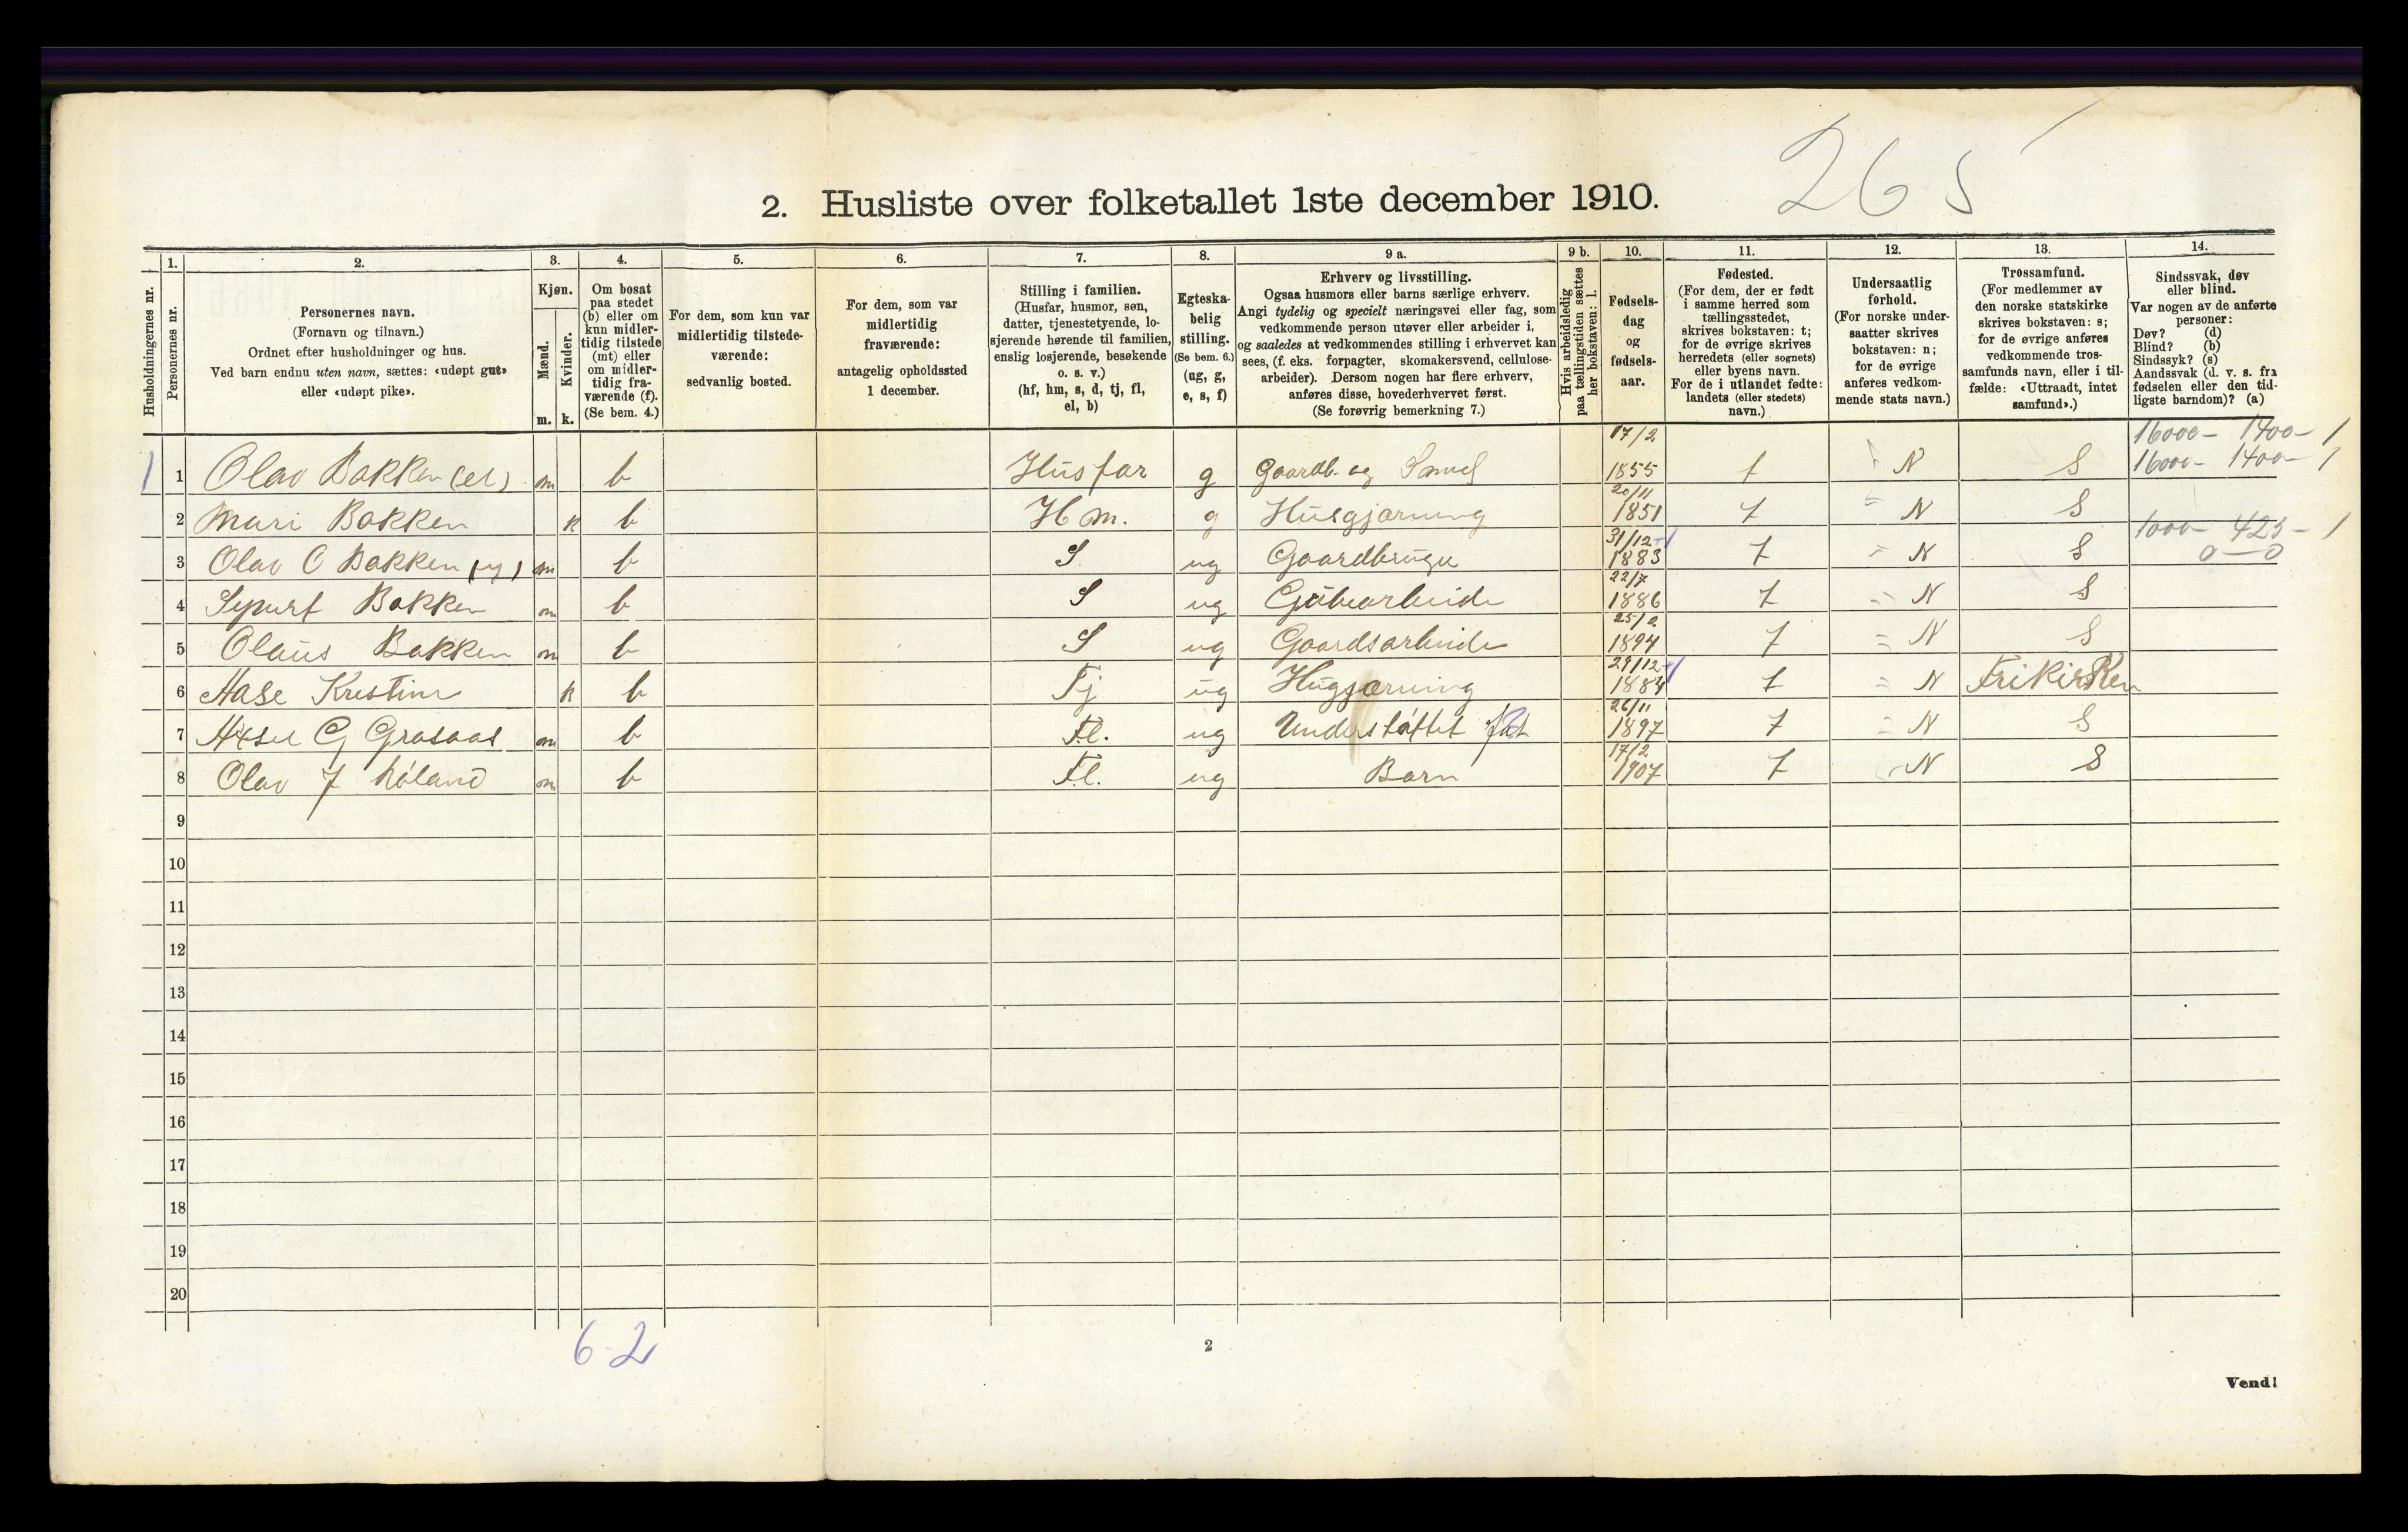 265
2. Husliste over folketallet 1ste december 1910.
Husholdningernes nr.
1. Personernes nr.
2. Personernes navn. (Fornavn og tilnavn.) Ordnet efter husholdninger og hus. Ved barn endnu uten navn, sættes: «udøpt gut» eller «udøpt pike».
3. Kjøn. Mænd. m. Kvinder. k.
4. Om bosat paa stedet (b) eller om kun midler-tidig tilstede (mt) eller om midler-tidig fra-værende (f). (Se bem. 4.)
5. For dem, som kun var midlertidig tilstede-værende: sedvanlig bosted.
6. For dem, som var midlertidig fraværende: antagelig opholdssted 1 december.
7. Stilling i familien. (Husfar, husmor, søn, datter, tjenestetyende, lo-sjerende hørende til familien, enslig losjerende, besøkende o. s. v.) (hf, hm, s, d, tj, fl, el, b)
8. Egteska-belig stilling. (Se bem. 6.) (ug, g, e, s, f)
9 a. Erhverv og livsstilling. Ogsaa husmors eller barns særlige erhverv. Angi tydelig og specielt næringsvei eller fag, som vedkommende person utøver eller arbeider i, og saaledes at vedkommendes stilling i erhvervet kan sees, (f. eks. forpagter, skomakersvend, cellulose-arbeider). Dersom nogen har flere erhverv, anføres disse, hovederhvervet først. (Se forøvrig bemerkning 7.)
9 b. Hvis arbeidsledig paa tællingstiden sættes her bokstaven: l.
10. Fødsels-dag og fødsels-aar.
11. Fødested. (For dem, der er født i samme herred som tællingsstedet, skrives bokstaven: t; for de øvrige skrives herredets (eller sognets) eller byens navn. For de i utlandet fødte: landets (eller stedets) navn.)
12. Undersaatlig forhold. (For norske under-saatter skrives bokstaven: n; for de øvrige anføres vedkom-mende stats navn.)
13. Trossamfund. (For medlemmer av den norske statskirke skrives bokstaven: s; for de øvrige anføres vedkommende tros-samfunds navn, eller i til-fælde: «Uttraadt, intet samfund».)
14. Sindssvak, døv eller blind. Var nogen av de anførte personer: Døv? (d) Blind? (b) Sindssyk? (s) Aandssvak (d. v. s. fra fødselen eller den tid-ligste barndom)? (a)
16000 - 1400 - 1
1 1 Olav Bakken (el) m b Husfar g Gaardb. og Smed 17/2 1855 t N S 16000 - 1400 - 1
2 Mari Bakken k b Hm. g Husgjærning 20/11 1851 t N S
1000 - 425 - 1
3 Olav O Bakken (y) m b S ug Gaardbruger 31/12 1883 t N S 0 - 0
4 Sjurt Bakken m b S ug 22/7 1886 t N S
5 Olaus Bakken m b S ug Gaardsarbeide 25/2 1894 t N S
6 Aase Kristine k b Tj ug Husgjærning 29/12 1884 t N Frikirken
7 Aksel G Grasaas m b Fl. ug Understøttet 26/11 1897 t N S
8 Olav J Høland m b Fl. ug Barn 17/2 1907 t N S
9
10
11
12
13
14
15
16
17
18
19
20
6-2
2
Vend!